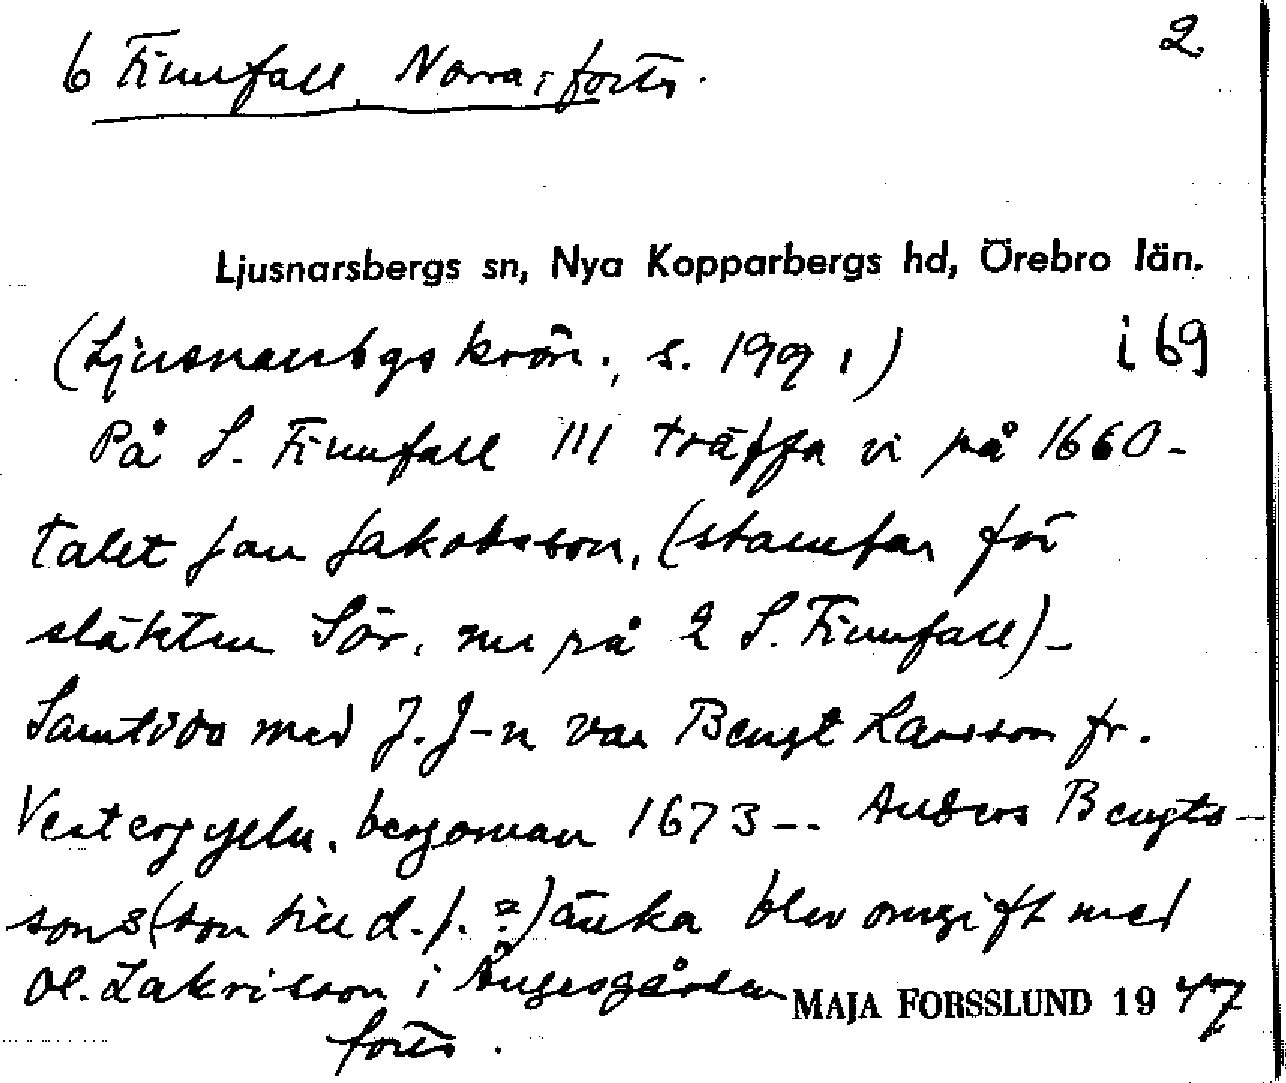 6 Finnfall, Norra, forts. 2
Ljusnarsbergs sn, Nya Kopparbergs hd, Örebro län.
(Ljusnarsbgs krön., s. 199.) i 69
På S. Finnfall III träffa vi på 1660-
talet Jan Jakobsson, (stamfar för
släkten Sör, nu på 2 S. Finnfall)-
Samtida med J.J-n var Bengt Larsson fr.
Vestergyeln, bergsman 1673-. Anders Bengts-
sons (son till d.f.?) änka blev omgift med
Ol. Zakrisson i Ängesgården
MAJA FORSSLUND 1947
forts.